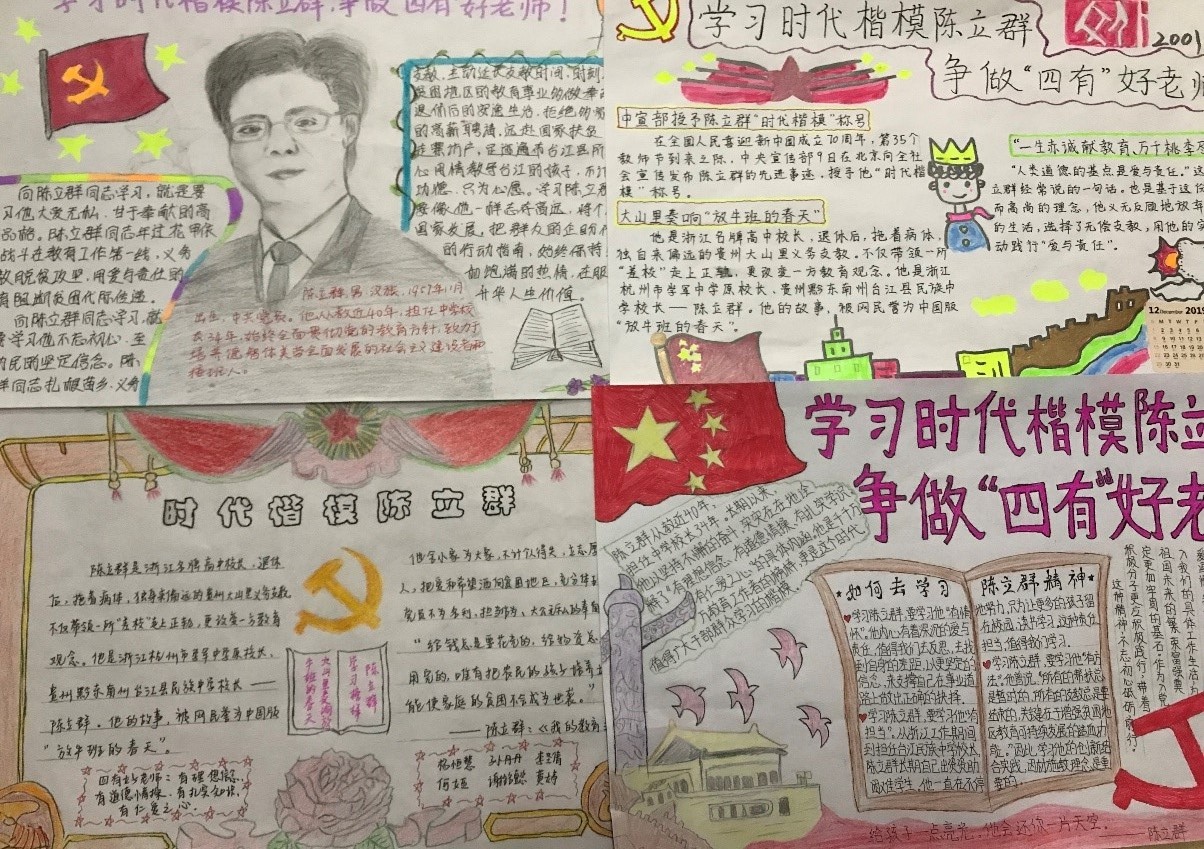 学习时代楷模陈立群,争做“四有好老师!
支教,主动延长支教时间,时刻
退休后的安逸生活,拒绝
的高薪聘请,远赴国家扶贫
心用情教导台江的孩子,不
功德,只为心愿。学习陈立群
要像他一样志存高远,将个
国家发展,把群众的企盼作
的行动指南,始终保持
如饱满的热情,在服
升华人生价值。
向陈立群同志学习,就是要
习他大爱无私、甘于奉献的高
品格。陈立群同志年过花甲依
战斗在教育工作第一线,义务
教脱贫攻坚,用爱与责任的
有阻断贫困代际传递。
向陈立群同志学习,就
要学习他不忘初心、至
为民的坚定信念。陈
群同志扎根苗乡,义务
陈立群,男,汉族,1957年11月
出生,中共党员。他从教近40年,担任中学校
长34年,始终全面贯彻党的教育方针,致力于
培养德智体美劳全面发展的社会主义建设者和
接班人。
学习时代楷模陈立群
2001
争做“四有”好老师
中宣部授予陈立群“时代楷模”称号
在全国人民喜迎新中国成立70周年,第35个
教师节到来之际,中央宣传部9日在北京向全社
会宣传发布陈立群的先进事迹,授予他“时代楷
模”称号。
大山里奏响“放牛班的春天”
他是浙江名牌高中校长,退休后,拖着病体,
独自来偏远的贵州大山里义务支教。不仅带领一所
“差校”走上正轨,更改变一方教育观念。他是浙江
杭州市学军中学原校长、贵州黔东南州台江县民族中
学校长——陈立群。他的故事,被网民誉为中国版
“放牛班的春天”。
“一生赤诚献教育,万千桃李
“人类道德的基点是爱与责任。”这
立群经常说的一句话。也是基于这
而高尚的理念,他义无反顾地放弃
的生活,选择了无偿支教,用他的实
动践行“爱与责任”。
12 December 2019
时代楷模陈立群
陈立群是浙江名牌高中校长,退休
后,拖着病体,独身来偏远的贵州大山里义务支教
不仅带领一所“差校”走上正轨,更改变一方教育
观念。他是浙江杭州市学军中学原校长,
贵州黔东南州台江县民族中学校长——
陈立群。他的故事,被网民誉为中国版
“放牛班的春天”。
他舍小家为大家,不计个得失,立志
人,把爱和希望洒向贫困地区,
“给钱总是要花完的,给物资总
用完的,唯有把农民的孩子培养
能使家庭的贫困不会成为世袭。”
——陈立群:《我的教育
陈立群
学习楷模
大山里奏响放
牛班的春天
四有好老师:有理想信念、
有道德情操、有扎实知识、
有仁爱之心
孙丹丹
学习时代楷模陈立
争做“四有”好老
陈立群从教近40年,
担任中学校长34年。长期以来,
他以坚持不懈的奋斗,实实在在地诠
释了有理想信念、有道德情操、有扎实学识、
有仁爱之心”的具体内涵。他是千千万
万教育工作者的榜样,更是这个时代
值得广大干部群众学习的楷模。
如何去学习 陈立群精神
学习陈立群,要学习他“有情
怀”。他内心有着深沉的爱与
责任,值得我们去反思,去找
到自身的差距,以更坚定的信
念,来支撑自己在事业道
路上做出正确的抉择。
学习陈立群,要学习他“有
担当”。从浙江工作期间
到担任台江民族中学校长,
陈立群长期自己出资资助
困难学生,他一直在不停
地努力,只为让更多的孩子留
在校园,读书学习,这种责任
担当,值得我们学习。
学习陈立群,要学习他“有方
法”。他曾说,“所有的帮扶总
是暂时的,所有的支教总是要
结束的,关键在于增强贫困地
区教育可持续发展的造血功
能。”因此,学习他的也需结
合实践,因材施教理念是重
要的。
给孩子一点亮光,他会还你一片天空。
——陈立群